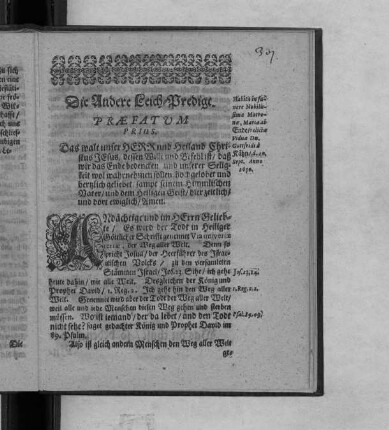 Die Andere Leich-Predigt.
PRÆFATUM
PRIUS.
Das walt unser HERR und Heiland Chri-
stus Jesus, dessen Will und Befehl ist, daß
wir das Ende bedencken, und unserer Selig-
keit wol wahrnehmen sollen, hoch gelobet und
hertzlich geliebet, sampt seinem Himmlischen
Vater, und dem Heiligen Geist, hier zeitlich,
und dort ewiglich, Amen.
ANdächtige und im HErrn Gelieb-
te, Es wird der Todt in Heiliger
Göttlicher Schrifft genennet Via universæ
der Weg aller Welt. Denn so
spricht Josua, der Heerführer des Israe-
litischen Volcks, zu den versamleten
Stämmen Israel, Jos. 23. Sihe, ich gehe
heut dahin, wie alle Welt. Desgleichen der König und
Prophet David, 1. Reg. 2. Ich gehe hin den Weg aller
Welt. Genennet wird aber der Todt der Weg aller Welt,
weil alle und jede Menschen diesen Weg gehen und sterben
müssen. Wo ist jemand, der da lebet, und den Todt
nicht sehe? saget gedachter König und Prophet David im
89. Psalm.
Also ist gleich andern Menschen den Weg aller Welt
ge-
Habita in fu-
nere Nobilis-
simæ Matro-
næ, Mariæ ab
Viduæ Dn.
Gottfridi à
Sept. Anno
1650.
Jos. 23, 14.
1. Reg. 2. 2.
Psal. 89. 49.
Die